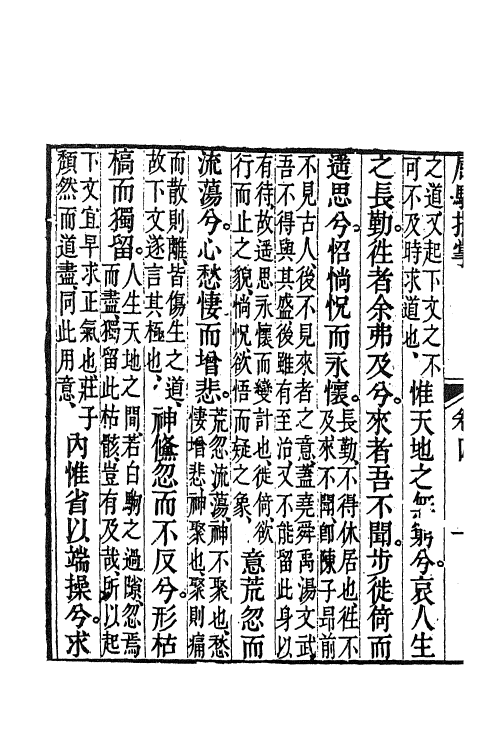 屈騷指掌 卷四 一
之道又起下文之不
可不及時求道也、
惟天地之無窮兮。哀人生
之長勤。徃者余弗及兮。來者吾不聞。步徙倚而
遥思兮。怊惝怳而永懷。
長勤、不得休居也、徃不
及來不聞、卽陳子昂前
不見古人後不見來者之意、蓋堯舜禹湯文武
吾不得與其盛、後雖有至治、又不能留此身以
有待、故遥思永懷而變計也、徙倚、欲
行而止之貌、惝怳、欲悟而疑之象、
意荒忽而
流蕩兮。心愁悽而增悲。
荒忽流蕩、神不聚也、愁
悽增悲、神聚也、聚則痛
而散則離、皆傷生之道、
故下文遂言其極也、
神儵忽而不反兮。形枯
槁而獨留。
人生天地之間、若白駒之過隙、忽焉
而盡、獨留此枯骸、豈有及哉、所以起
下文宜早求正氣也、莊子
頹然而道盡、同此用意、
內惟省以端操兮。求